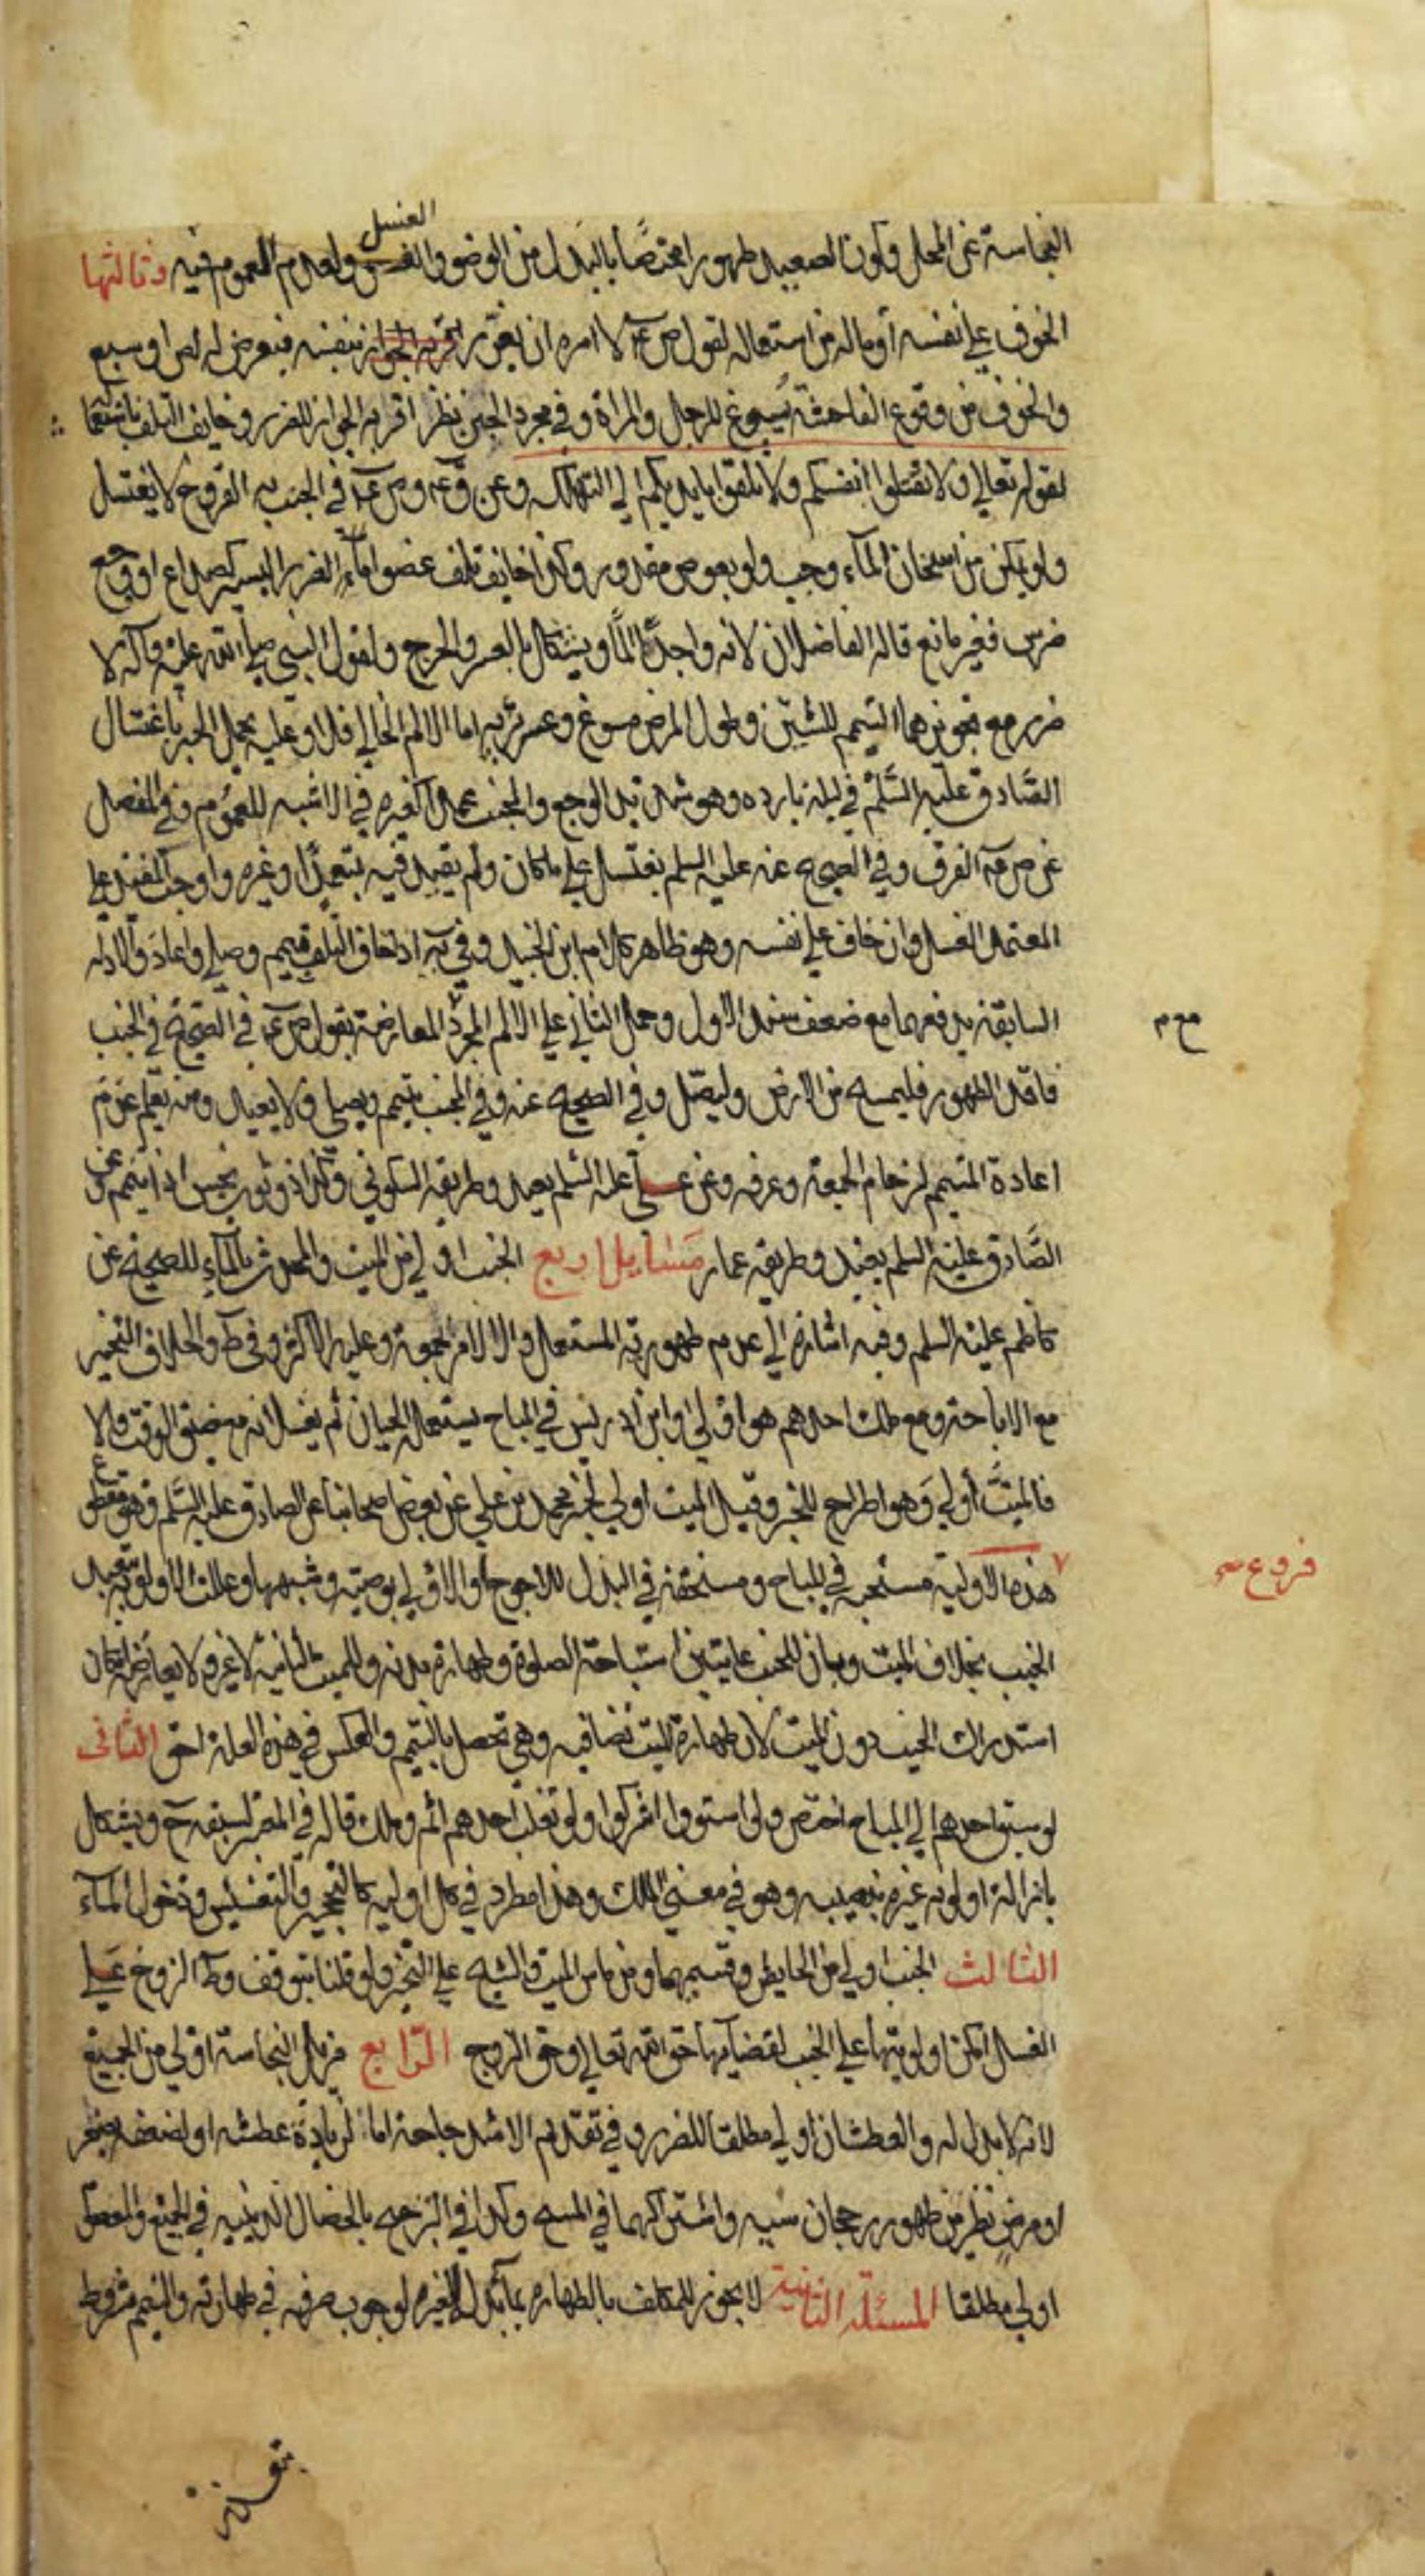 النجاسة عن المحل وكون الصعيد طهورا مختصا بالبدل من الوضو والغسل ولعدم العموم فيه وثالثها
الخوف على نفسه أو ماله من استعماله لقول ص ع لا امره ان يغرر بنفسه فيعرض له لص او سبع
والخوف من وقوع الفاحشة يسوغ للرجل والمراة وفي مجرد الجبن نظر اقربه الجواز للضرر وخايف التلف
لقوله تعالى ولا تقتلوا انفسكم ولا تلقوا بايديكم الى التهلكه وعن ق ع و ص ع في الجنب به القروح لا يغتسل
ولو تمكن من اسخان الماء وجب ولو بعوض مقدور وكذا خايف تلف عضو اما الضرر اليسير كصداع او وجع
ضرس فغير مانع قاله الفاضلان لانه واجد للماء ويشكل بالعسر والحرج ولقول النبي صلى الله عليه وآله لا
ضرر مع تجويزهما التيمم للشين وطول المرض مسوغ وعسر برئه اما الالم الحالي فلا وعليه يحمل الخبر باغتسال
الصادق عليه السلم في ليلة بارده وهو شديد الوجع والمجنب عمدا كغيره في الاشبه للعموم وفي المفصل
عن ص ع الفرق وفي الصحيح عنه عليه السلم يغتسل على ما كان ولم يقيد فيه بتعمد او غيره واوجب المفيد على
المعتمد الغسل وان خاف على نفسه وهو ظاهر كلام ابن الجنيد وفي يه اذ خاف التلف تيمم وصلى واعاد والادله
السابقة يدفعهما مع ضعف سند الاول وحمل الثاني على الالم المجرد لمعارضة بقول ص ع في الصحيح في الجنب
فاقد الطهور فليمسح من الارض وليصل وفي الصحيح عنه وفي الجنب تيمم ويصلى ولا يعيد ومنه يعلم عدم
مع م
اعادة المتيمم لزحام الجمعة وعرفه وعن علي عليه السلم يعيد وطريقه السكوني وكذا ذو ثوب نجس اذا تيمم عن
الصادق عليه السلم يعيد وطريقه عمار مسايل اربع الجنب اولى من الميت والمحدث بالماء للصحيح عن
كاظم عليه السلم وفيه اشارة الى عدم طهورية المستعمل والا لامر بجمعه وعليه الاكثر وفي ط والخلاف التخيير
مع الاباحة ومع ملك احدهم هو اولى وابن ادريس في المباح يستعمله الحيان ثم يغسلانه مع ضيق الوقت والا
فالميت أولى وهو اطراح للخبر وقيل الميت اولى لخبر محمد بن علي عن بعض اصحابنا عن الصادق عليه السلم وهو مقطوع
فروع
هذه الاولية مستحبة في المباح ومستحقة في البذل للاحوج او الاولى بوصيته وشبهها وعللت الاولوية بتعبد
الجنب بخلاف الميت وبان للجنب غايتين استباحة الصلوة وطهارة بدنه وللميت الثانية لا غير ولا يعارض بامكان
استدراك الجنب دون الميت لان طهارة الميت نضافيه وهي تحصل بالتيمم والعكس في هذه العلة احق الثاني
لو سبق احدهم الى المباح اختص ولو استووا اشتركوا ولو تغلب احدهم اثم وملك قاله في المعتبر لسبقه ح ويشكل
بازالة اولويه غيره بنصيبه وهو في معنى الملك وهذا مطرد في كل اولويه كالتحجير والتعشيش ودخول الماء
الثالث الجنب اولى من الحايض وقسيميها ومن ماس الميت والشيخ على التخير ولو قلنا بتوقف وطء الزوج على
الغسل امكن اولويتها على الجنب لقضائها حق الله تعالى وحق الزوج الرابع مزيل النجاسة اولى من الجميع
لانه لا بدل له والعطشان اولى مطلقا للضرر وفي تقديم الاشد حاجة اما لزيادة عطشه او لضعفه بصغر
او مرض نظر من ظهور رجحان سببه واشتراكهما في المسح وكذا في الترجيح بالخصال الدينيه في الجميع والمعصوم
اولى مطلقا المسئلة الثانية لا يجوز للمكلف بالطهاره بماء بذل لغيره لوجوب صرفه في طهارته والتيمم مشروط